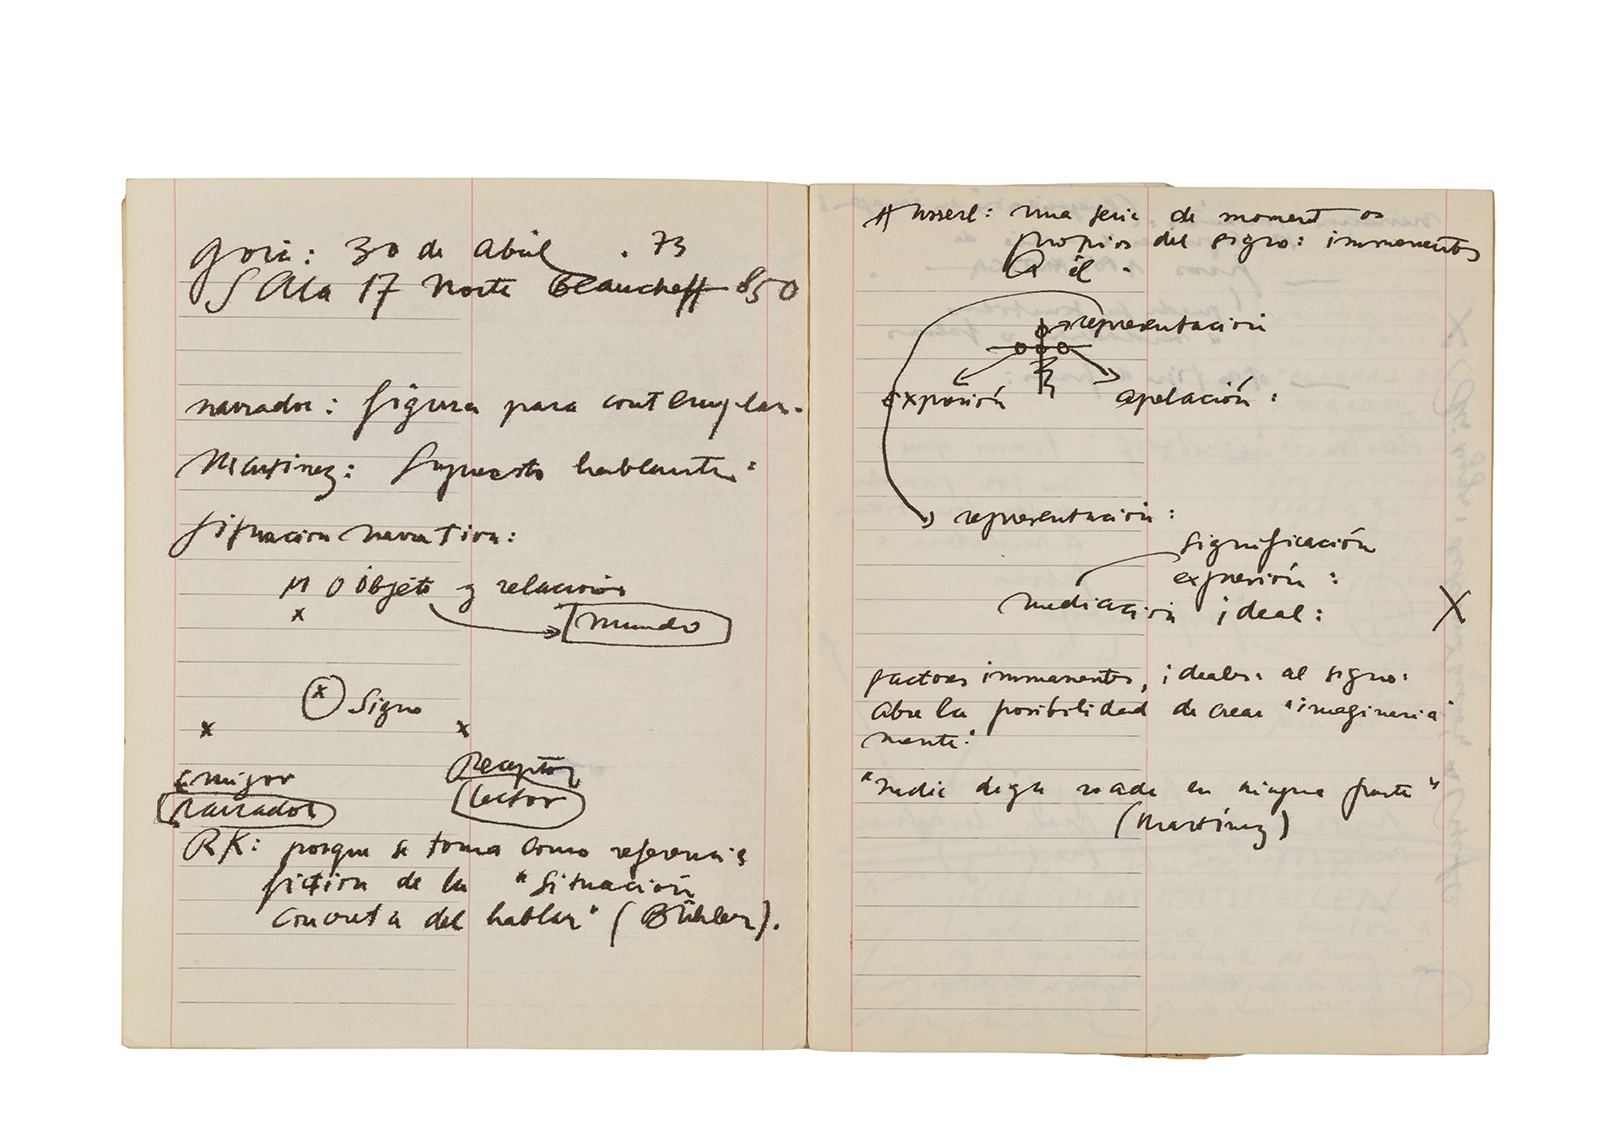 Goic: 30 de Abril . 73
SAla 17 Norte Beaucheff 850
narrador: figura para contemplar.
Martínez: Supuesto hablante:
situación narrativa:
M O objeto y relación
mundo
x
x Signo
x x
emisor Receptor
narrador lector
RK: porque se toma como referencia
ficticia de la "situación
concreta del hablar" (Bühler).
Husserl: una serie de momentos
propios del signo: inmanentes
a él.
representación
expresión apelación:
representación:
significación
expresión:
mediación ideal:
X
X
factores inmanentes, ideales al signo:
abre la posibilidad de crear "imaginaria
mente:
"nadie diga nada en ninguna parte"
(Martínez)